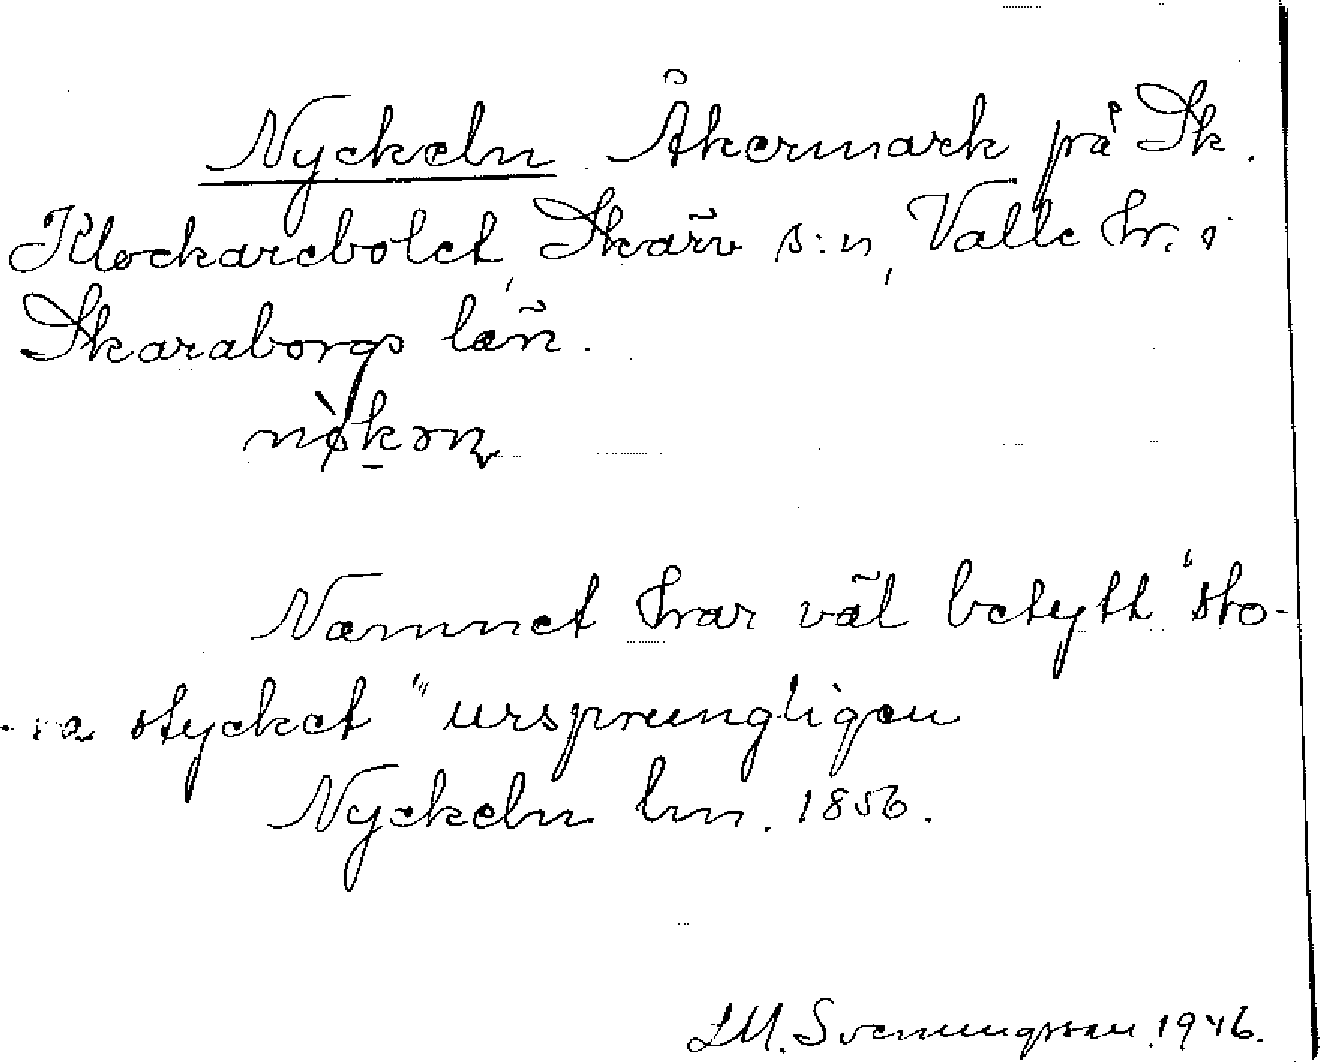 Nyckeln Åkermark på Sk.
Klockarebolet, Skärv s:n, Valle hr. i
Skaraborgs län.
Namnet har väl betytt "sto-
ra stycket" ursprungligen
Nyckeln lm. 1856.
LM. Svenungsson. 1946.